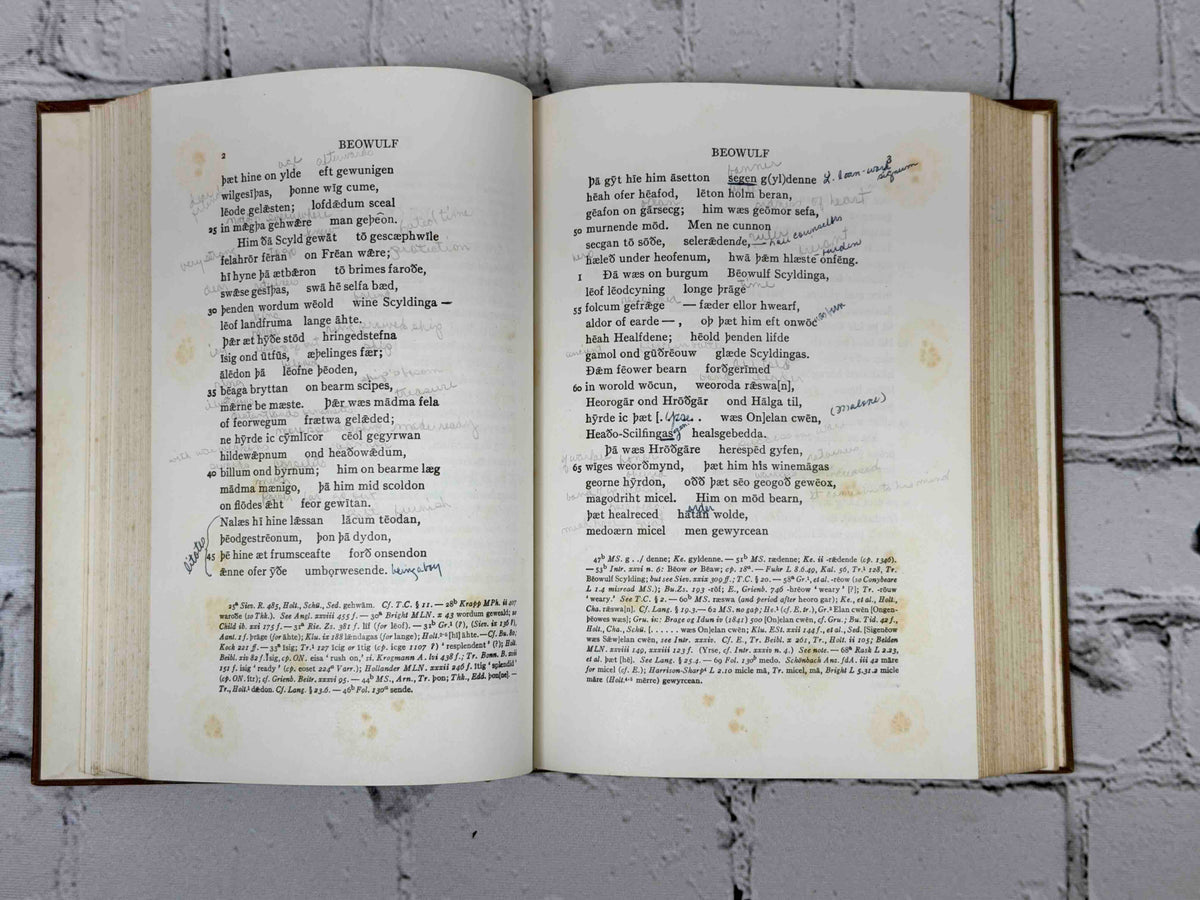 2
BEOWULF
þæt hine on ylde eft gewunigen
wilgesīþas, þonne wīg cume,
lēode gelǣsten; lofdǣdum sceal
25 in mǣgþa gehwǣre man geþēon.
Him ðā Scyld gewāt tō gescæphwīle
felahrōr fēran on Frēan wǣre;
hī hyne þā ætbǣron tō brimes faroðe,
swǣse gesīþas, swā hē selfa bæd,
30 þenden wordum wēold wine Scyldinga —
lēof landfruma lange āhte.
Þǣr æt hȳðe stōd hringedstefna
īsig ond ūtfūs, æþelinges fær;
ālēdon þā lēofne þēoden,
35 bēaga bryttan on bearm scipes,
mǣrne be mæste. Þǣr wæs mādma fela
of feorwegum frætwa gelǣded;
ne hȳrde ic cȳmlīcor cēol gegyrwan
hildewǣpnum ond heaðowǣdum,
40 billum ond byrnum; him on bearme læg
mādma mænigo, þā him mid scoldon
on flōdes ǣht feor gewītan.
Nalæs hī hine lǣssan lācum tēodan,
þēodgestrēonum, þon þā dydon,
litotes
45 þē hine æt frumsceafte forð onsendon
ǣnne ofer ȳðe umborwesende. being a boy
25ᵃ Siev. R. 485, Holt., Schü., Sed. gehwām. Cf. T.C. § 11. — 28ᵇ Krapp MPh. ii 407
waroðe (so Thk.). See Angl. xxviii 455 f. — 30ᵃ Bright MLN. x 43 wordum geweald; so
Child ib. xxi 175 f. — 31ᵃ Rie. Zs. 381 f. līf (for lēof). — 31ᵇ Gr.¹ (?), (Siev. ix 136 ?),
Aant. 1 f. þrāge (for āhte); Klu. ix 188 lǣndagas (for lange); Holt. [hī] āhte. — Cf. Bu. 80;
Koch 221 f. — 33ᵃ īsig; Tr.¹ 127 icig or ītig (cp. icge 1107 ?) ' resplendent ' (?); Holt.
Beibl. xiv 82 f. īsig, cp. ON. eisa ' rush on,' vi. Krogmann A. lvi 438 f.; Tr. Bonn. B. xvii
151 f. isig ' ready ' (cp. eoset 224ᵃ Varr.); Hollander MLN. xxxii 246 f. ītig ' splendid '
(cp. ON. ítr); cf. Grienb. Beitr. xxxvi 95. — 44ᵇ MS., Arn., Tr. þon; Thk., Edd. þon[ne]. —
Tr., Holt.¹ dǣdon. Cf. Lang. § 23.6. — 46ᵇ Fol. 130ᵃ sende.
BEOWULF
3
banner
Þā gȳt hīe him āsetton segen g(yl)denne L. loan-word signum
hēah ofer hēafod, lēton holm beran,
gēafon on gārsecg; him wæs geōmor sefa,
50 murnende mōd. Men ne cunnon
secgan tō sōðe, selerǣdende, — hall counsellors
hæleð under heofenum, hwā þǣm hlæste onfēng. burden
I Ðā wæs on burgum Bēowulf Scyldinga,
lēof lēodcyning longe þrāge
55 folcum gefrǣge — fæder ellor hwearf,
aldor of earde — , oþ þæt him eft onwōc
hēah Healfdene; hēold þenden lifde
gamol ond gūðrēouw glæde Scyldingas.
Ðǣm fēower bearn forðgerīmed
60 in worold wōcun, weoroda rǣswa[n],
Heorogār ond Hrōðgār ond Hālga til,
hȳrde ic þæt [. . . . wæs On]elan cwēn, (Malone)
Heaðo-Scilfingas healsgebedda.
Þā wæs Hrōðgāre herespēd gyfen,
65 wīges weorðmynd, þæt him his winemāgas
georne hȳrdon, oðð þæt sēo geogoð gewēox,
magodriht micel. Him on mōd bearn,
order
þæt healreced hātan wolde,
medoærn micel men gewyrcean
47ᵇ MS. g . . / denne; Ke. gyldenne. — 51ᵇ MS. rædenne; Ke. ii -rædende (cp. 1346).
— 53ᵇ Intr. xxvi n. 6: Bēow or Bēaw; cp. 18ᵃ. — Fuhr L 8.6.49, Kal. 56, Tr.¹ 128, Tr.
Bēowulf Scylding; but see Siev. xxix 309 ff.; T.C. § 20. — 58ᵃ Gr.¹, et al. -rēow (so Conybeare
L 1.4 misread MS.); Bu.Zs. 193 -rōf; E., Grienb. 746 -hrēow ' weary ' [?]; Tr. -rouw
' weary.' See T.C. § 2. — 60ᵇ MS. ræswa (and period after heoro gar); Ke., et al., Holt.,
Cha. rǣswa[n]. Cf. Lang. § 19.3. — 62 MS. no gap; He.¹ (cf. E. tr.), Gr.² Elan cwēn [Ongen-
þēowes wæs]; Gru. in: Brage og Idun iv (1841) 500 [On]elan cwēn, cf. Gru.; Bu. Tid. 42 f.,
Holt., Cha., Schü. [. . . . . . wæs On]elan cwēn; Klu. ESt. xxii 144 f., et al., Sed. [Sigenēow
wæs Sǣw]elan cwēn, see Intr. xxxiv. Cf. E., Tr. Beibl. x 261, Tr., Holt. ii 105; Belden
MLN. xxviii 149, xxxiii 123 f. (Yrse, cf. Intr. xxxiv n. 4.) See note. — 68ᵃ Rask L 2.23,
et al. þæt [hē]. See Lang. § 25.4. — 69 Fol. 130ᵇ medo. Schönbach Anz. fdA. iii 42 māre
for micel (cf. E.); Harrison-Sharp⁴ L 2.10 micle mā, Tr. micel, mā, Bright L 5.31.2 micle
māre (Holt. mērre) gewyrcean.